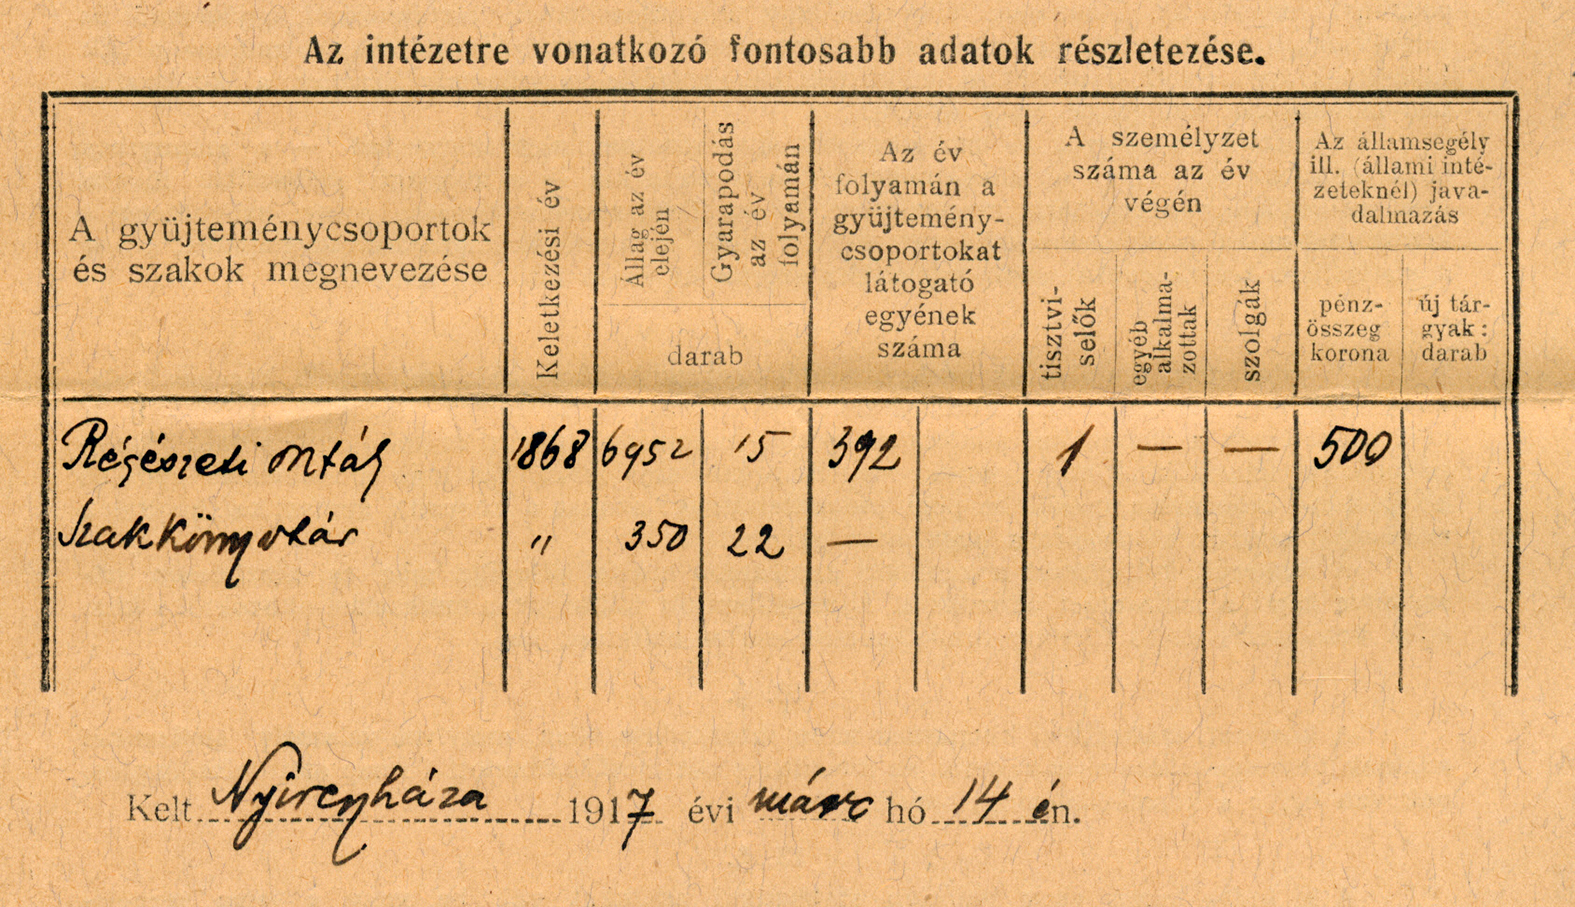 Az intézetre vonatkozó fontosabb adatok részletezése.
A gyüjteménycsoportok
és szakok megnevezése
Keletkezési év
Állag az év
elején
Gyarapodás
az év
folyamán
darab
Az év
folyamán a
gyüjtemény-
csoportokat
látogató
egyének
száma
A személyzet
száma az év
végén
tisztvi-
selők
egyéb
alkalma-
zottak
szolgák
Az államsegély
ill. (állami inté-
zeteknél) java-
dalmazás
pénz-
összeg
korona
új tár-
gyak:
darab
Régészeti 1868 6952 15 392 1 — — 500
Szakkönyvtár " 350 22 —
Kelt Nyiregyháza 1917 évi márc hó 14 én.